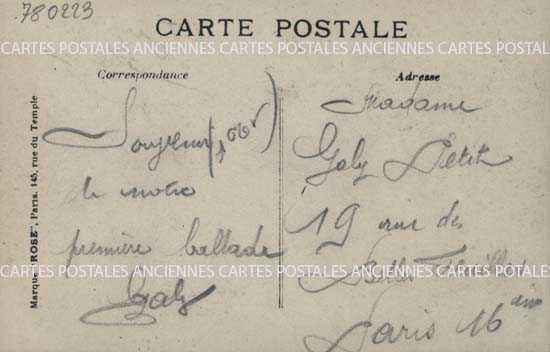 780223
CARTE POSTALE
CARTES POSTALES ANCIENNES CARTES POSTALES ANCIENNES CARTES POSTALES
Correspondance
Souvenir
de notre
première ballade
Galy
Adresse
Madame
Galy Petit
19 rue des
Belles Feuilles
Paris 16
CARTES POSTALES ANCIENNES CARTES POSTALES ANCIENNES CARTES POSTALES
Marque "ROSE", Paris. 145, rue du Temple